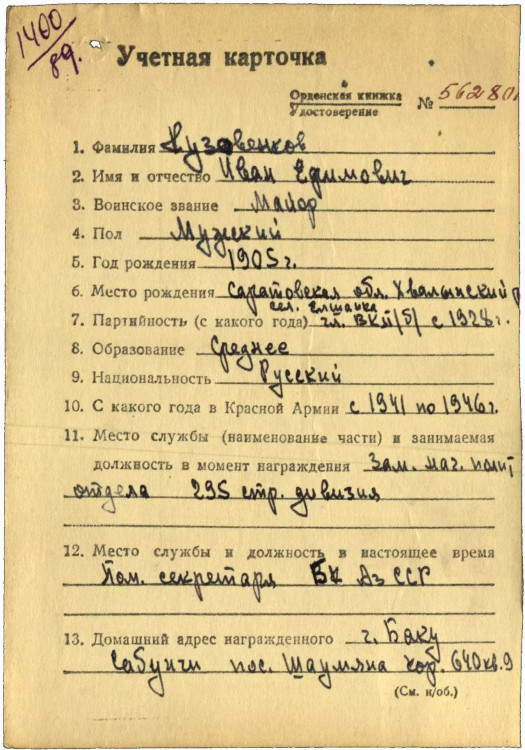 1400/89.
Учетная карточка
Орденская книжка
Удостоверение № 562801
1. Фамилия Кузовенков
2. Имя и отчество Иван Ефимович
3. Воинское звание Майор
4. Пол Мужский
5. Год рождения 1905 г.
6. Место рождения Саратовская обл. Хвалынский р
сел. Елшанка
7. Партийность (с какого года) чл. ВКП/б/ с 1928 г.
8. Образование Среднее
9. Национальность Русский
10. С какого года в Красной Армии с 1941 по 1946 г.
11. Место службы (наименование части) и занимаемая
должность в момент награждения Зам. нач. полит
отдела 295 стр. дивизия
12. Место службы и должность в настоящее время
Пом. секретаря БК Аз ССР
13. Домашний адрес награжденного г. Баку
Сабунчи пос. Шаумяна 640 кв. 9
(См. н/об.)